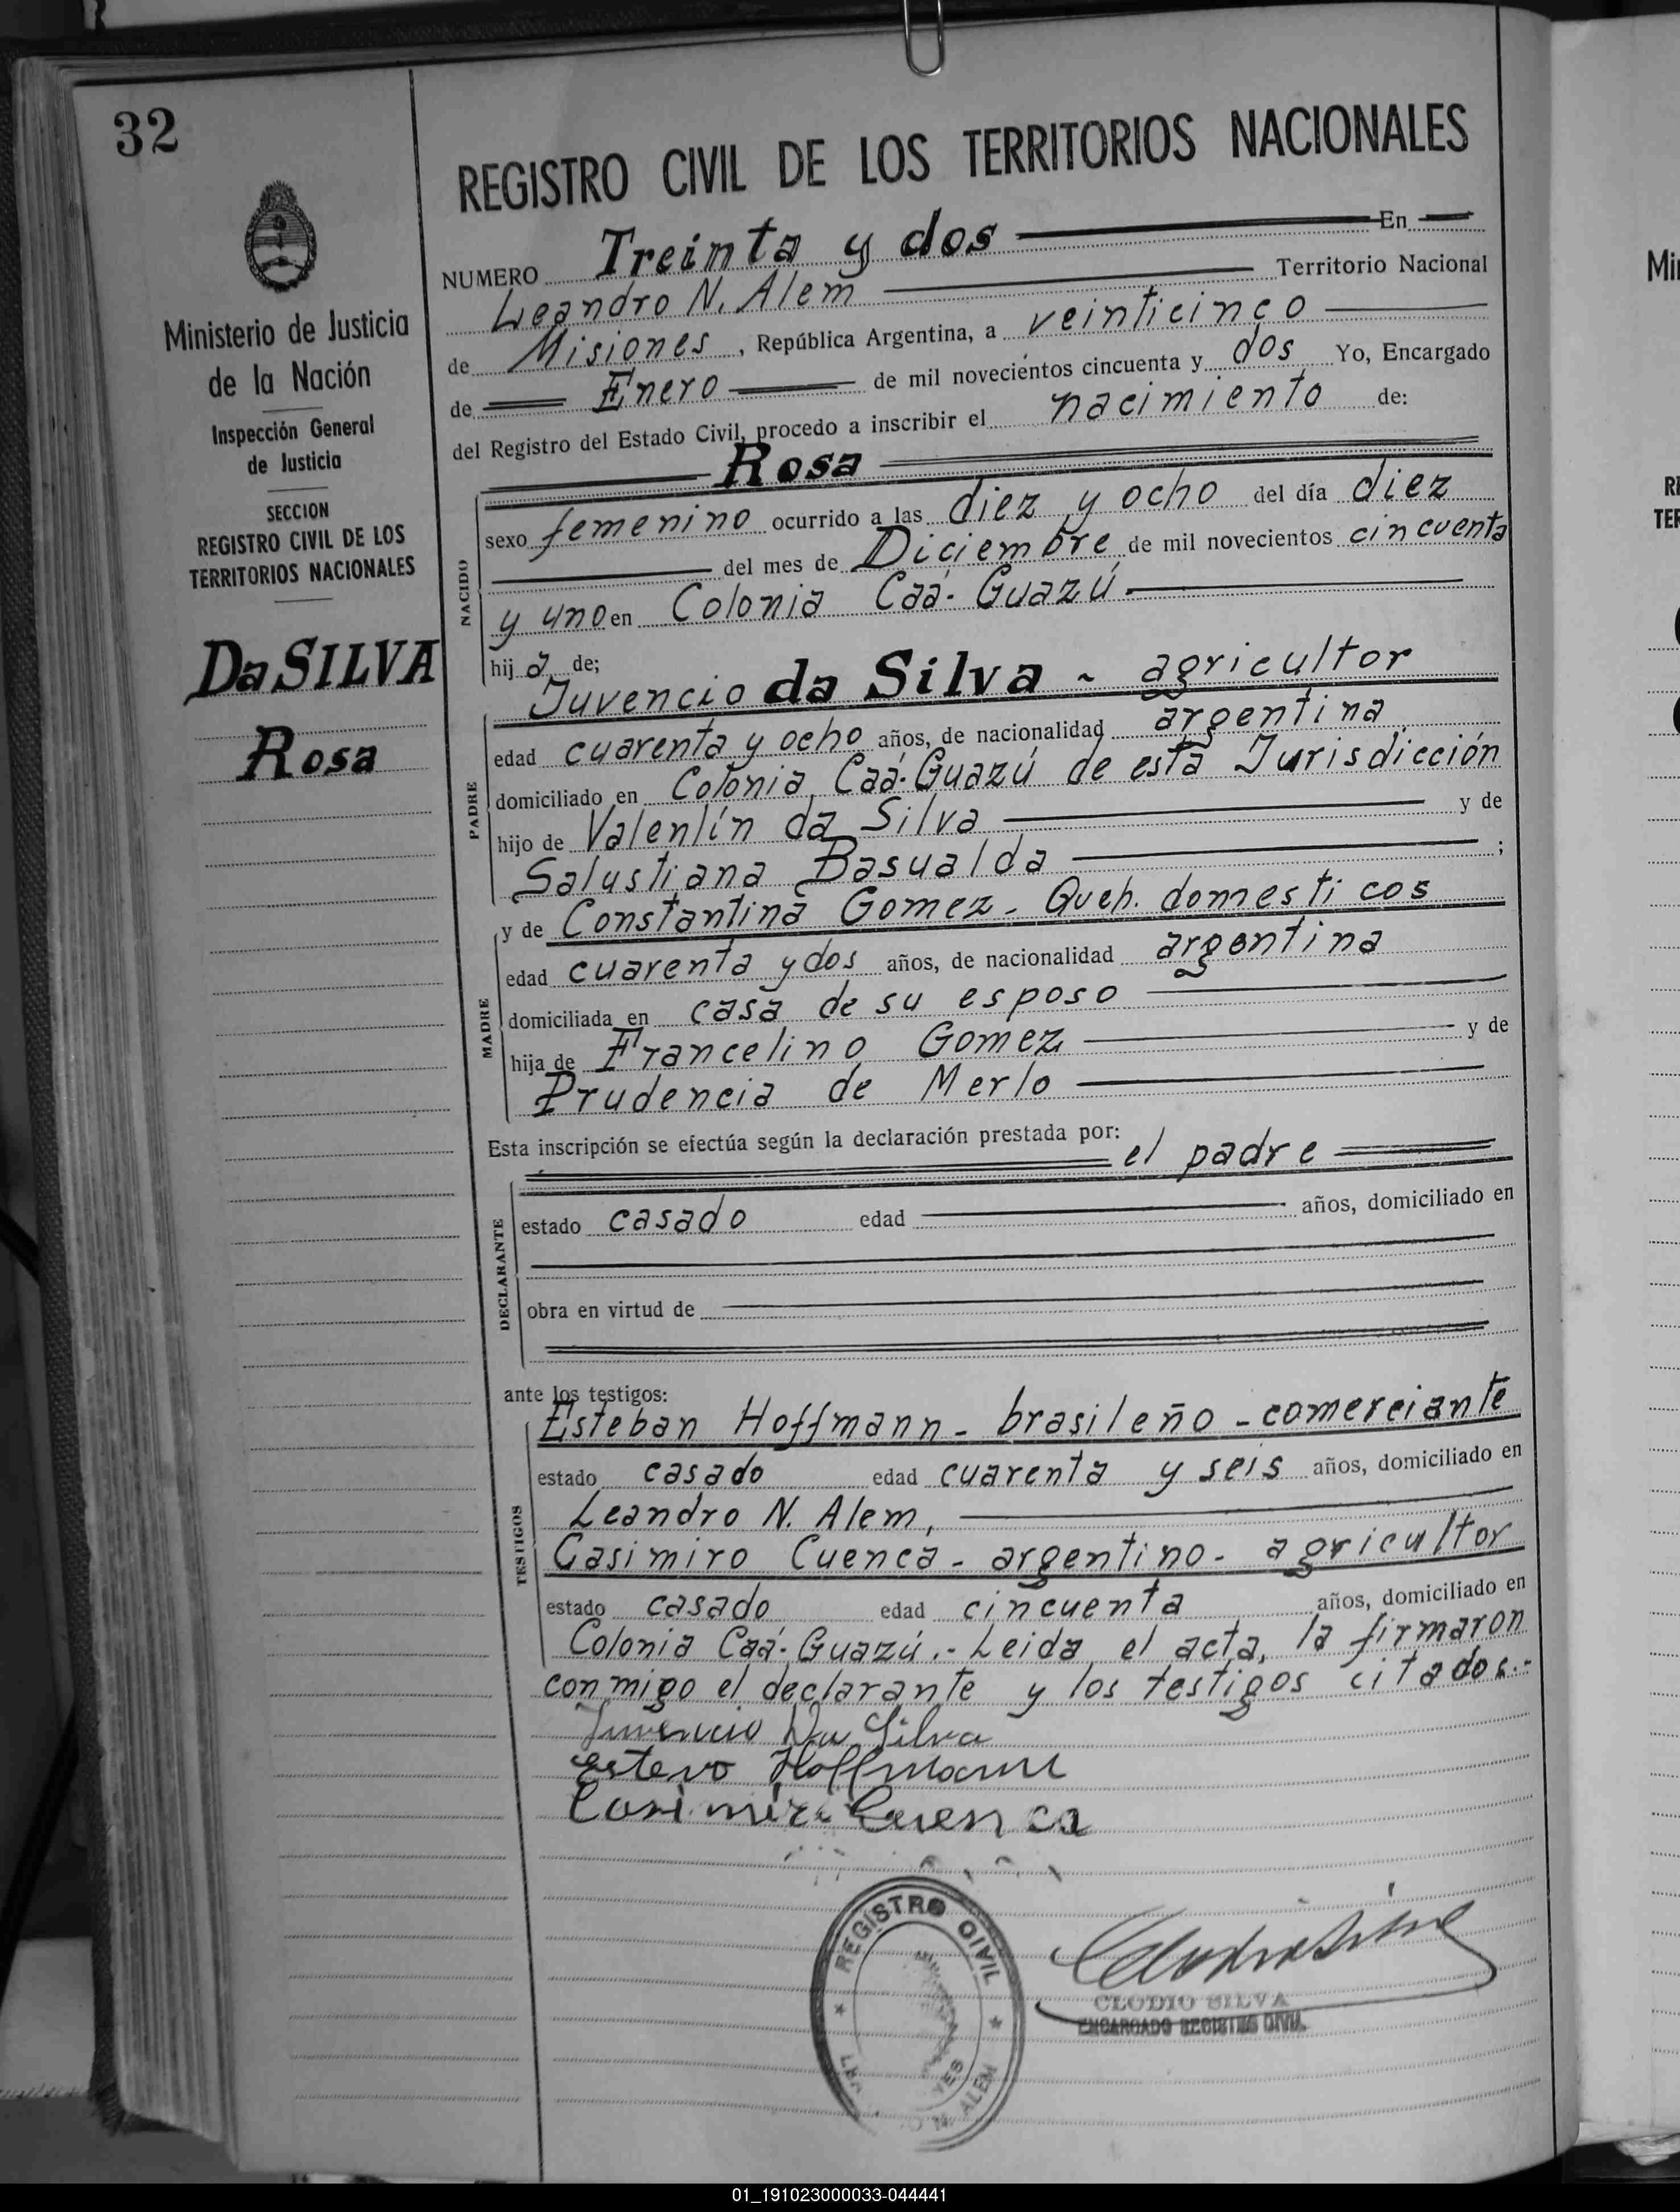 32
Ministerio de Justicia
de la Nación
Inspección General
de Justicia
SECCION
REGISTRO CIVIL DE LOS
TERRITORIOS NACIONALES
Da SILVA
Rosa
REGISTRO CIVIL DE LOS TERRITORIOS NACIONALES
NUMERO Treinta y dos En
Leandro N. Alem Territorio Nacional
de Misiones, República Argentina, a veinticinco
de Enero de mil novecientos cincuenta y dos Yo, Encargado
del Registro del Estado Civil, procedo a inscribir el nacimiento de:
Rosa
NACIDO
sexo femenino ocurrido a las diez y ocho del día diez
del mes de Diciembre de mil novecientos cincuenta
y uno en Colonia Caá-Guazú
hija de;
PADRE
Juvencio da Silva - agricultor
edad cuarenta y ocho años, de nacionalidad argentina
domiciliado en Colonia Caá-Guazú de esta Jurisdicción
hijo de Valentín da Silva y de
Salustiana Basualda ;
MADRE
y de Constantina Gomez - Queh. domesticos
edad cuarenta y dos años, de nacionalidad argentina
domiciliada en casa de su esposo
hija de Francelino Gomez y de
Prudencia de Merlo
Esta inscripción se efectúa según la declaración prestada por:
el padre
DECLARANTE
estado casado edad años, domiciliado en
obra en virtud de
ante los testigos:
TESTIGOS
Esteban Hoffmann - brasileño - comerciante
estado casado edad cuarenta y seis años, domiciliado en
Leandro N. Alem,
Casimiro Cuenca - argentino - agricultor
estado casado edad cincuenta años, domiciliado en
Colonia Caá-Guazú.- Leida el acta, la firmaron
conmigo el declarante y los testigos citados.-
Juvencio Da Silva
Estevo Hoffmann
Casimiro Cuenca
REGISTRO CIVIL
N. ALEM
CLODIO SILVA
ENCARGADO REGISTRO CIVIL
01_191023000033-044441